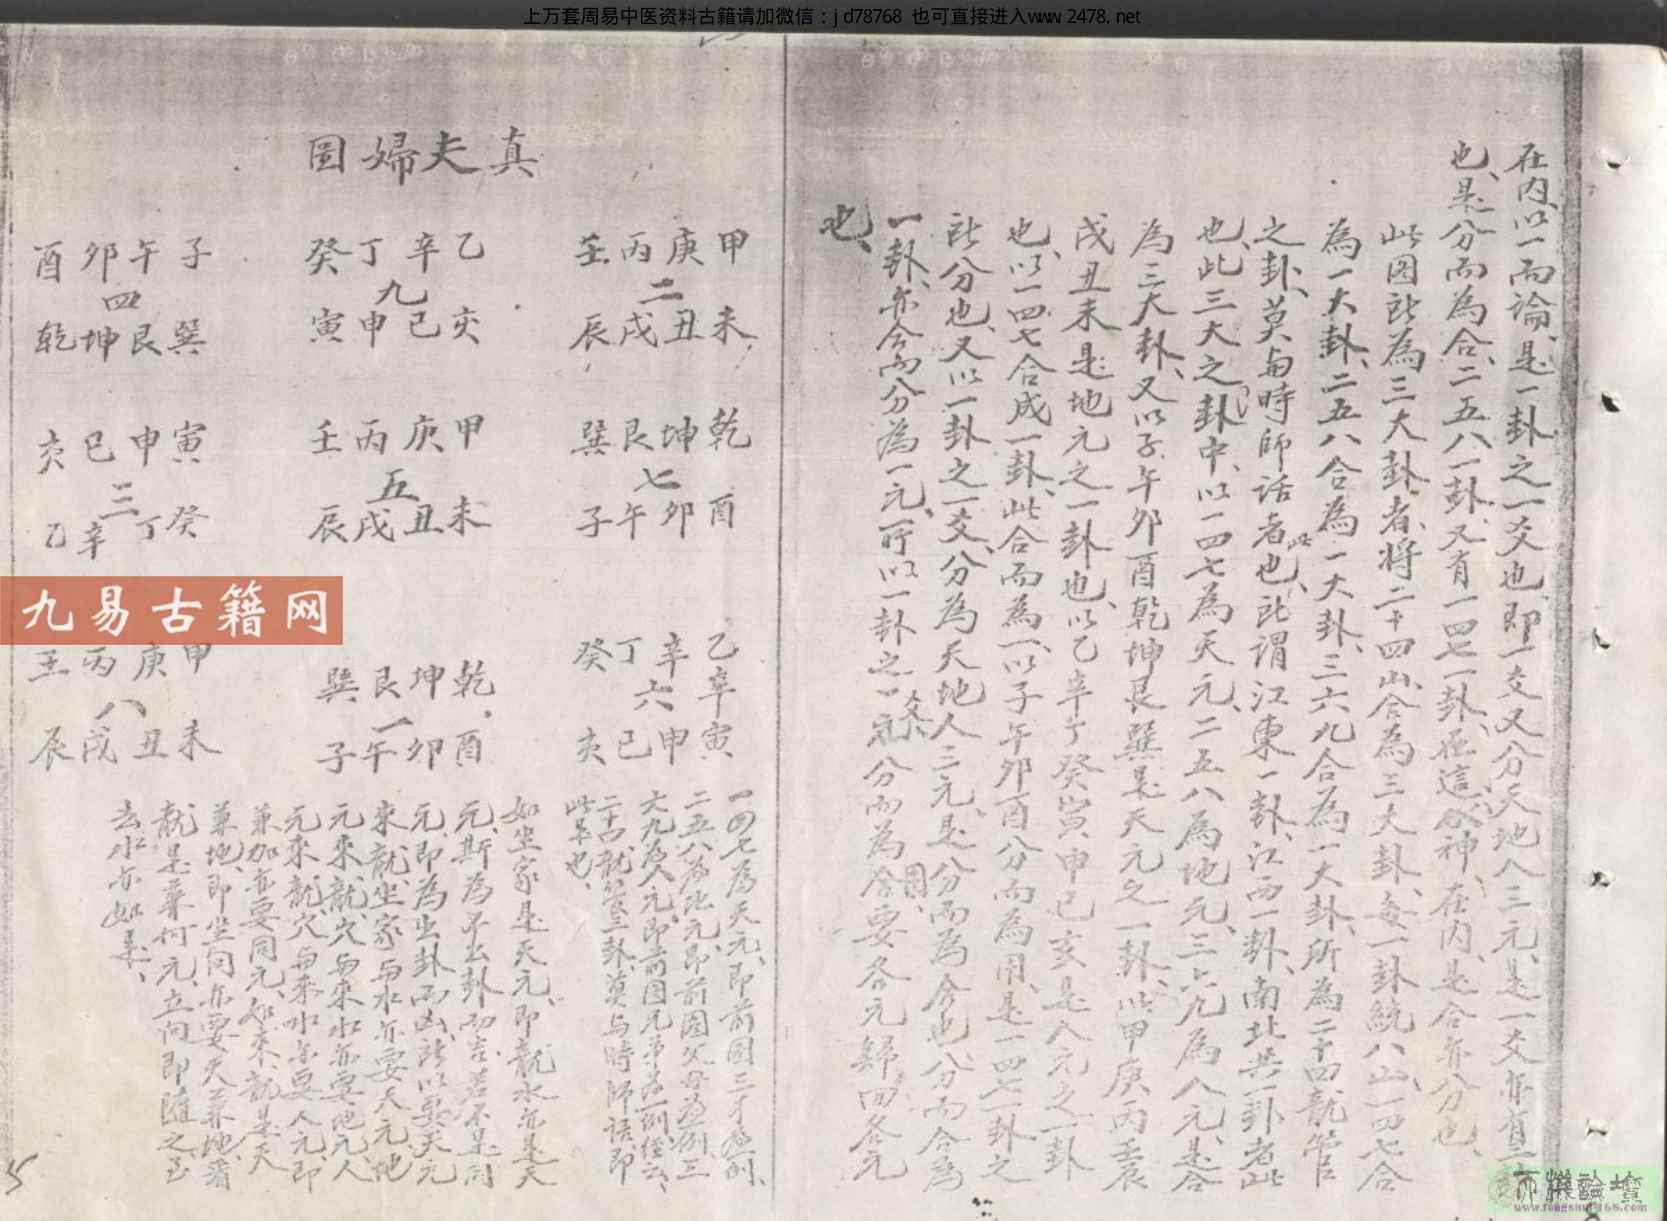 上万套周易中医资料古籍请加微信：jd78768 也可直接进入www.2478.net
在内、以一而論、是一卦之一爻也、即一爻又分天地人三元、是一爻亦有三卦
也、是分而為合、二五八一卦、又有一四七一卦、在内、是合亦分也、
此图所為三大卦者、将二十四山、合為三大卦、每一卦統八山、一四七合
為一大卦、二五八合為一大卦、三六九合為一大卦、所為二十四龍管
之卦、莫与時師話者此也、所謂江東一卦、江西一卦、南北共一卦者此
也、此三大之卦中、以一四七為天元、二五八為地元、三六九為人元、是合
為三大卦、又以子午卯酉乾坤艮巽是天元之一卦、以甲庚丙壬辰
戌丑未是地元之一卦也、以乙辛丁癸寅申巳亥是人元之一卦
也、以一四七合成一卦、此合而為一、以子午卯酉分而為用、是一四七一卦之
所分也、又以一卦之一爻、分為天地人三元、是分而為合也、分而合為
一卦、亦合而分為一元、所以一卦之一爻分而為合用、要各元歸回各元
也、
真夫婦圖
甲庚丙壬
二
未丑戌辰
乙辛丁癸
九
亥巳申寅
子午卯酉
四
巽艮坤乾
乾坤艮巽
七
酉卯午子
甲庚丙壬
五
未丑戌辰
寅申巳亥
三
癸丁辛乙
乙辛丁癸
六
寅申巳亥
乾坤艮巽
一
酉卯午子
甲庚丙壬
八
未丑戌辰
一四七為天元、即前圖三才為例、
二五八為地元、即前圖父母為例、三
六九為人元、即前图兄弟為一例、经云、
二十四龍管三卦、莫与時師話、即
此是也、
如坐家是天元、即龍水亦是天
元、斯為不出卦而吉、若不是同
元、即為出卦而凶、所以要天元
來龍、坐家与水亦要天元、地
元來龍、穴与來水亦要地元、人
元來龍、穴与來水亦要人元、即
兼加亦要同元、如來龍是天
兼地、即坐向亦要天兼地、看
龍是兼何元、立向即随之、至
去水亦如是、
九易古籍网
www.fengshui168.com